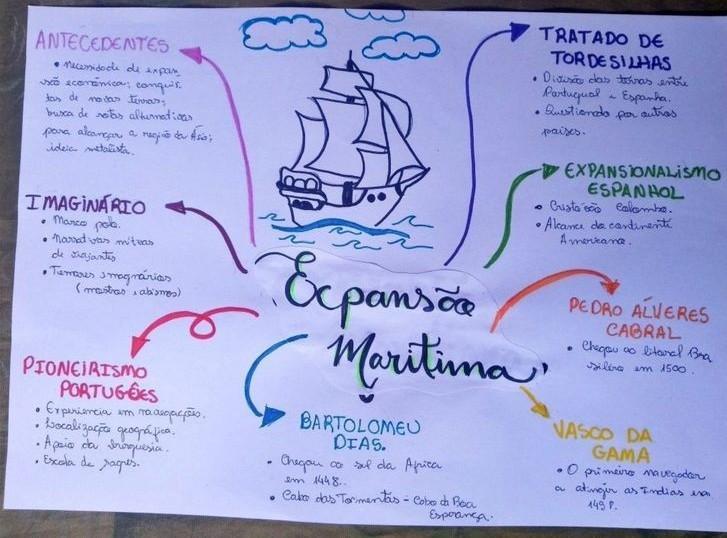 ANTECEDENTES
• necessidade de expan
são econômica; conquis
tas de novas terras;
busca de rotas alternativas
para alcançar a região da Ásia;
ideia metalista.
IMAGINÁRIO
• Marco polo.
• Narrativas míticas
de viajantes
• Temores imaginários
(mostros e abismos)
PIONEIRISMO
PORTUGÊES
• Experiencia em navegações.
• Localização geográfica.
• Apoio da burguesia.
• Escola de sagres.
Expansão
Marítima
BARTOLOMEU
DIAS.
• Chegou ao sul da Africa
em 1448.
• Cabo das Tormentas - Cabo da Boa
Esperança.
TRATADO DE
TORDESILHAS
• Divisão das terras entre
Portugual e Espanha.
• Questionado por outros
países.
EXPANSIONALISMO
ESPANHOL
• Cristóvão Colombo.
• Alcance do continente
Americano.
PEDRO ÁLVERES
CABRAL
• Chegou ao litoral Bra
sileiro em 1500.
VASCO DA
GAMA
• O primeiro navegador
a atingir as Indias em